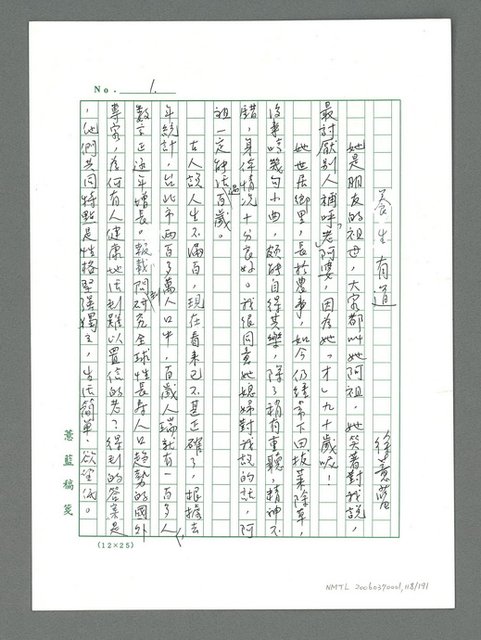 No. 1.
養生有道
徐薏藍
她是朋友的祖母,大家都叫她阿祖。她笑著對我說,
最討厭別人稱呼「老阿婆」,因為她「才」九十歲呢!
她世居鄉里,長於農事,如今仍經常下田拔菜除草,
沒事哼幾句小曲,頗能自得其樂,除了稍有重聽,精神不
錯,身体情況十分良好。我很同意她媳婦對我說的話,阿
祖一定能活過百歲。
古人說人生不滿百,現在看來已不甚正確了,根據去
年統計,台北市兩百多萬人口中,百歲人瑞就有一百多人,
數字正逐年增長。報載,專門研究全球性長壽人口趨勢的國外
專家,為何有人健康地活到難以置信的老?得到的答案是
,他們共同特點是性格堅強獨立,生活簡單,欲望低。
薏藍稿箋
(12×25)
NMTL 20060370001,118/191